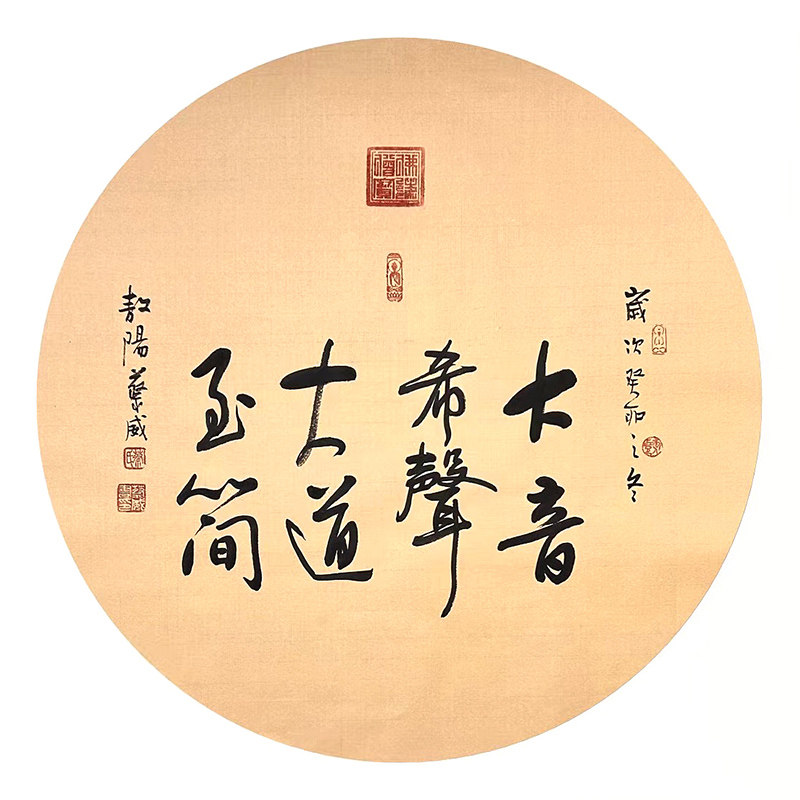 歲次癸卯之冬
大音
希聲
大道
至簡
敖陽威